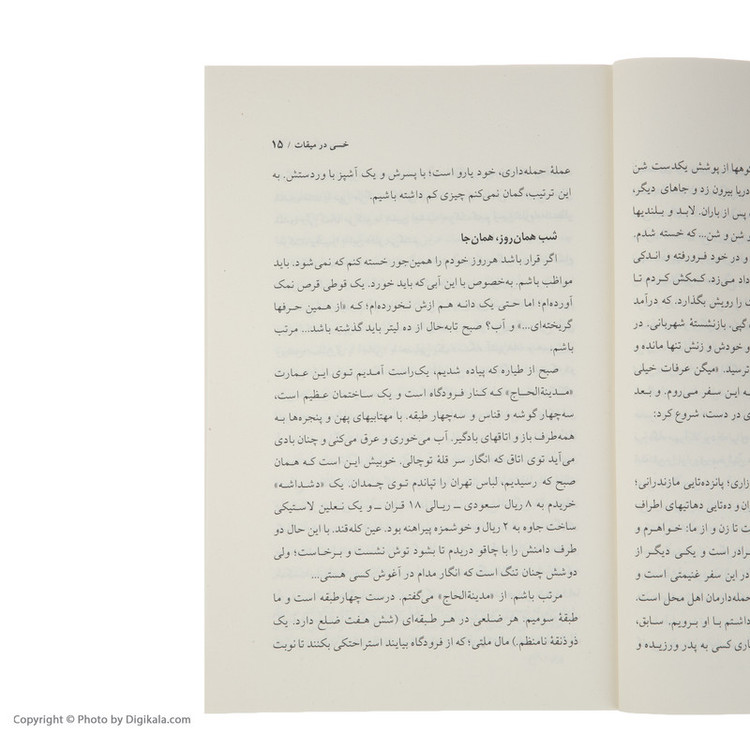 کوهها از پوشش یکدست شن
دریا بیرون زد و جاهای دیگر،
پس از باران. لابد و بلندیها
و شن و شن... که خسته شدم.
و در خود فرورفته و اندکی
داد می‌زد. کمکش کردم تا
را رویش بگذارد. که درآمد
گپی. بازنشستهٔ شهربانی. در
و خودش و زنش تنها مانده و
ترسید. «میگن عرفات خیلی
ه این سفر می‌روم. و بعد
ی در دست، شروع کرد:
زاری؛ پانزده‌تایی مازندرانی؛
ان و ده‌تایی دهاتیهای اطراف
ت تا زن و از ما: خواهرم و
برادر است و یکی دیگر از
در این سفر غنیمتی است و
حمله‌دارمان اهل محل است.
داشتم با او برویم. سابق،
اری کسی به پدر ورزیده و
خسی در میقات / ۱۵
عملهٔ حمله‌داری، خود یارو است؛ با پسرش و یک آشپز با وردستش. به
این ترتیب، گمان نمی‌کنم چیزی کم داشته باشیم.
شب همان‌روز، همان‌جا
اگر قرار باشد هرروز خودم را همین‌جور خسته کنم که نمی‌شود. باید
مواظب باشم. به‌خصوص با این آبی که باید خورد. یک قوطی قرص نمک
آورده‌ام؛ اما حتی یک دانه هم ازش نخورده‌ام؛ که «از همین حرفها
گریخته‌ای...» و آب؟ صبح تابه‌حال از ده لیتر باید گذشته باشد... مرتب
باشم.
صبح از طیاره که پیاده شدیم، یک‌راست آمدیم توی این عمارت
«مدینةالحاج» که کنار فرودگاه است و یک ساختمان عظیم است،
سه‌چهار گوشه و قناس و سه‌چهار طبقه. با مهتابیهای پهن و پنجره‌ها به
همه‌طرف باز و اتاقهای بادگیر. آب می‌خوری و عرق می‌کنی و چنان بادی
می‌آید توی اتاق که انگار سر قلهٔ توچالی. خوبیش این است که همان
صبح که رسیدیم، لباس تهران را تپاندم توی چمدان. یک «دشداشه»
خریدم به ۸ ریال سعودی ــ ریالی ۱۸ قران ــ و یک نعلین لاستیکی
ساخت جاوه به ۲ ریال و خوشمزه پیراهنه بود. عین کله‌قند. با این حال دو
طرف دامنش را با چاقو دریدم تا بشود توش نشست و برخاست؛ ولی
دوشش چنان تنگ است که انگار مدام در آغوش کسی هستی...
مرتب باشم. از «مدینةالحاج» می‌گفتم. درست چهارطبقه است و ما
طبقهٔ سومیم. هر ضلعی در هر طبقه‌ای (شش هفت ضلع دارد. یک
ذوذنقهٔ نامنظم.) مال ملتی؛ که از فرودگاه بیایند استراحتکی بکنند تا نوبت
Copyright © Photo by Digikala.com